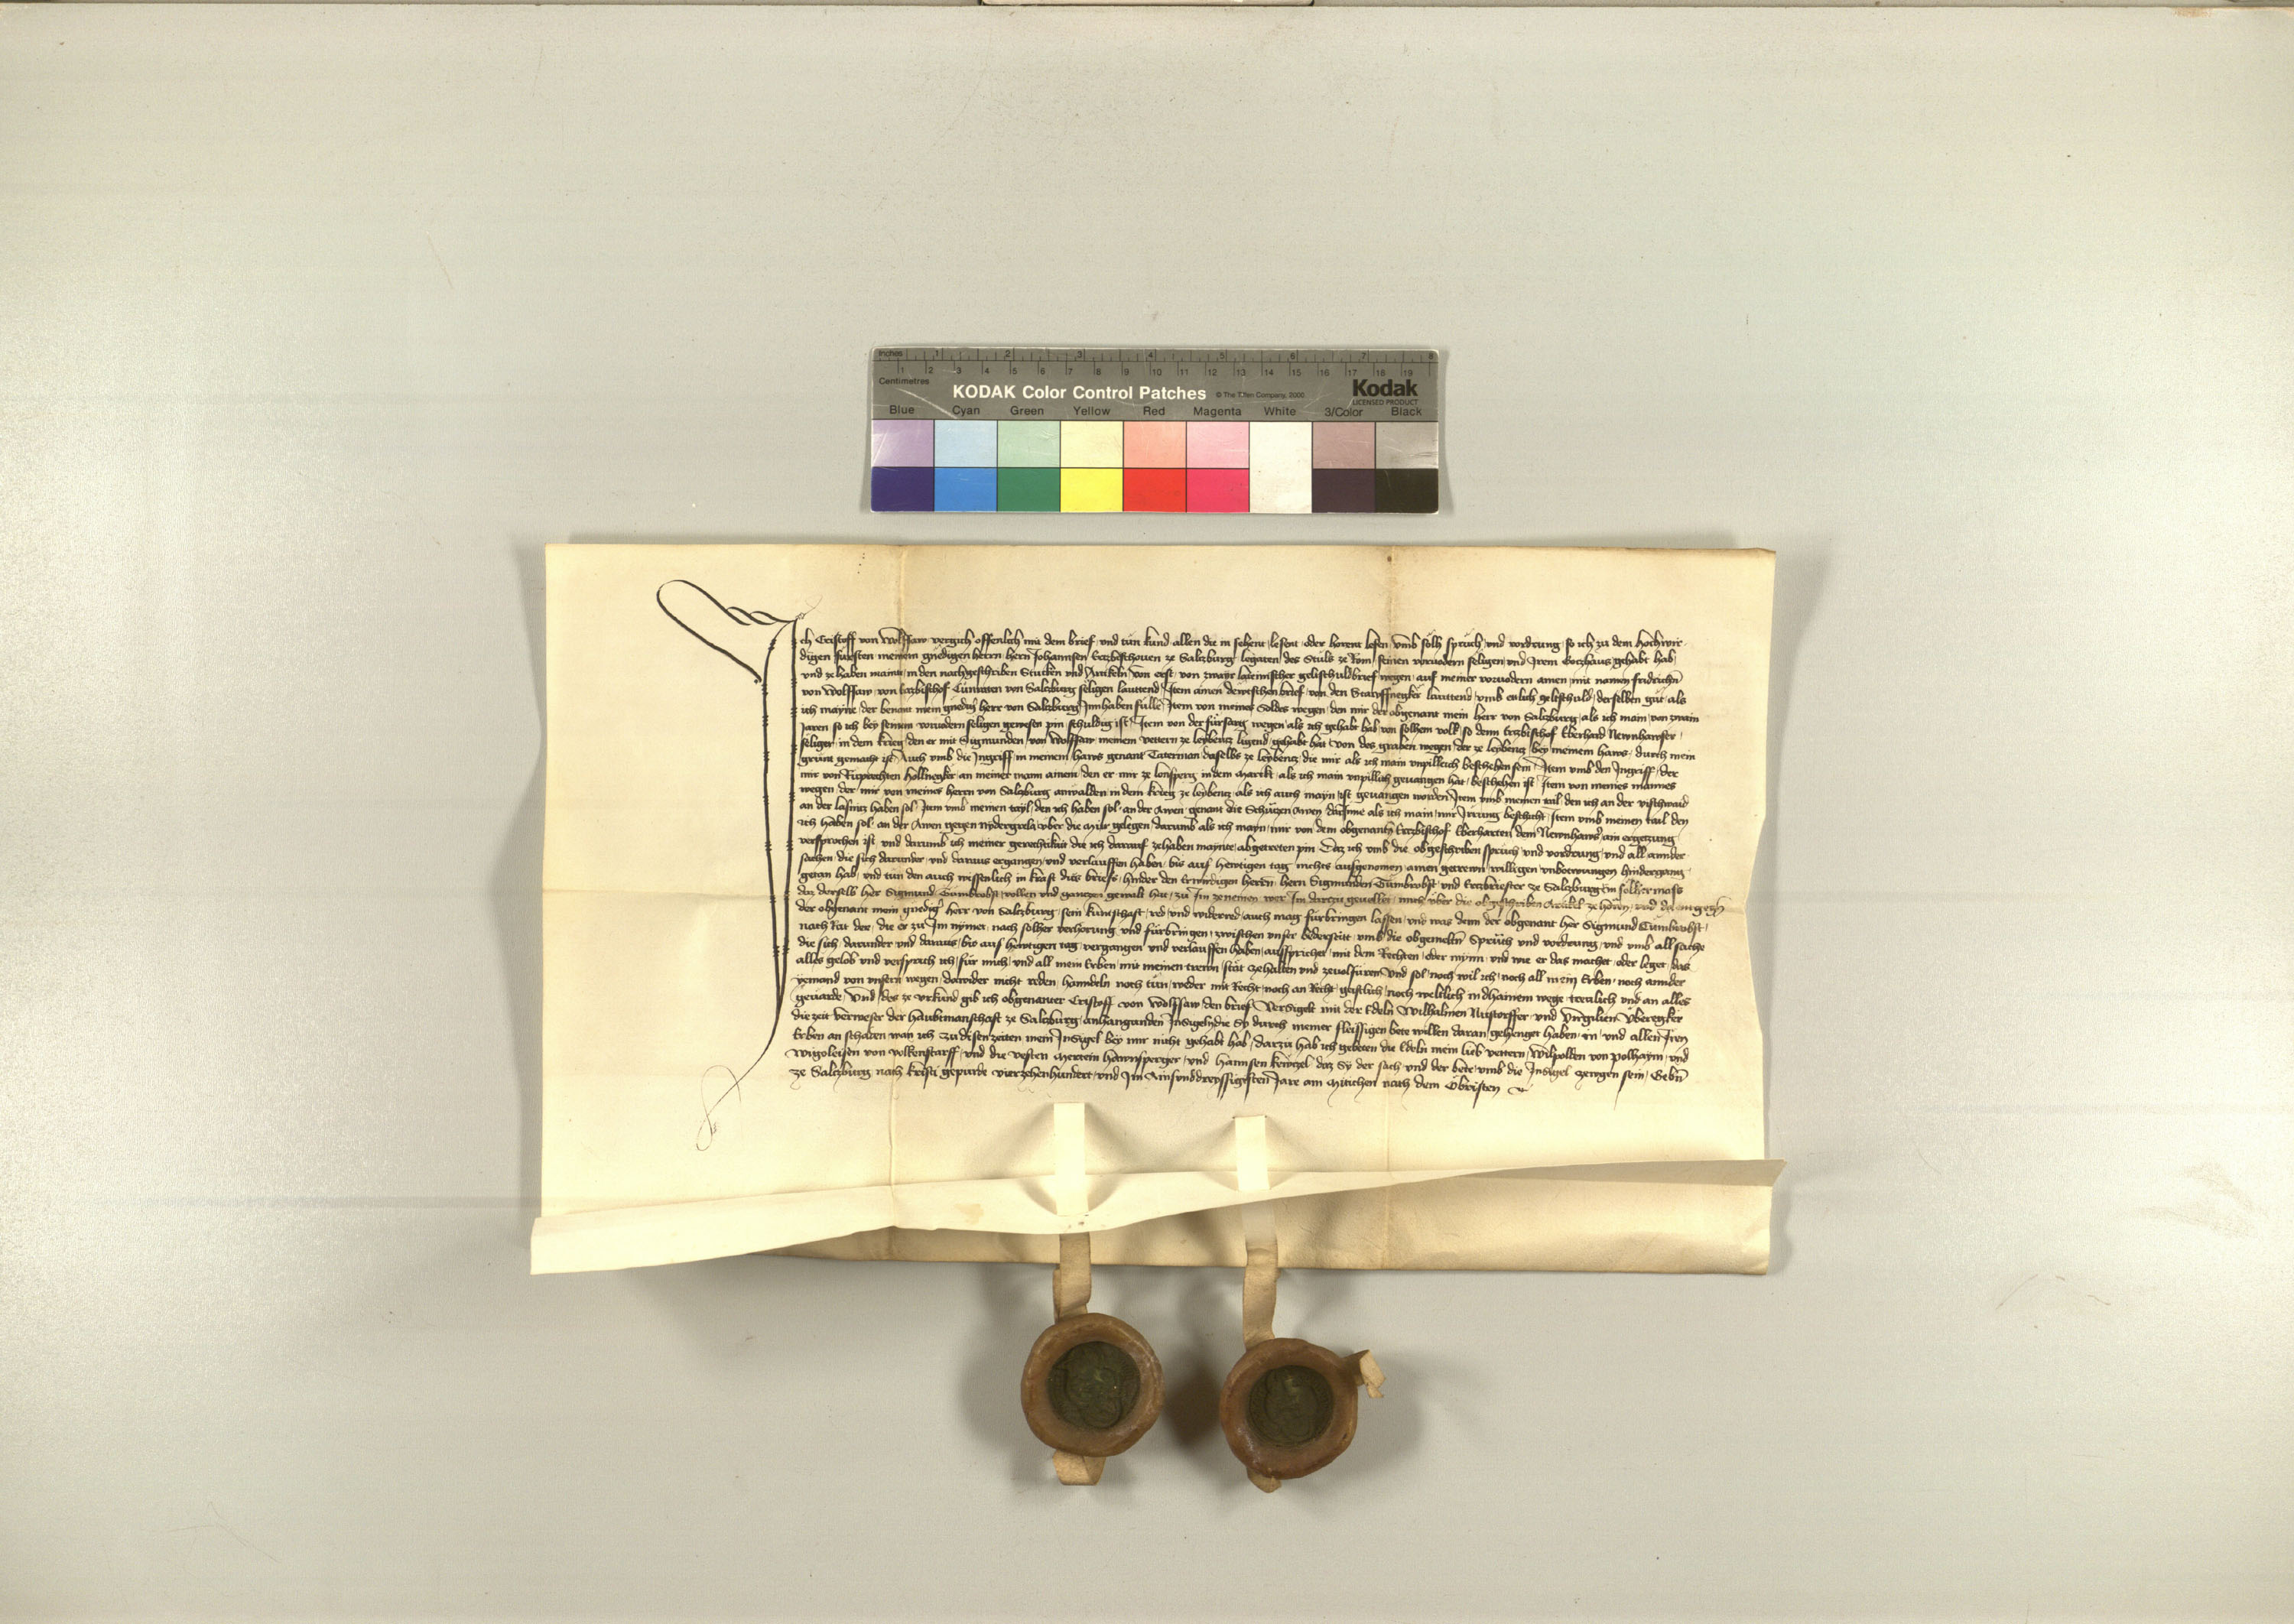 Inches 1 2 3 4 5 6 7 8
Centimetres 1 2 3 4 5 6 7 8 9 10 11 12 13 14 15 16 17 18 19
KODAK Color Control Patches © The Tiffen Company, 2000 Kodak
LICENSED PRODUCT
Blue Cyan Green Yellow Red Magenta White 3/Color Black
Ich Cristoff von Wolfsaw vergich offenlich mit dem brief und tun kund allen die in sehent lesent oder horent lesen umb solh spruch und vordrung so ich zu dem Hochwir
digen fursten meinem gnedigen herrn hern Johannsen Ertzbischouen ze Salzburg legaten des Stuls ze Rom seinen voruodern seligen und Irem Gotzhaus gehabt hab
und ze haben maint in den nachgeschriben Stucken und Artikeln von erst von zwayr lateinischer geltschuldbrief wegen auf meiner voruodern ainen mit namen fridrichn
von Wolffsaw von Ertzbischof Cunraten von Salczburg seligen lauttend Item ainen dewtschen brief von den Stariffnegker lauttend umb etlich geltschuld derselben gut als
ich mayne der benant mein gnedig herr von Salczburg Innhaben sulle Item von meines Soldes wegen den mir der obgenant mein herr von Salczburg als ich main von zwain
Jaren so ich bey seinem voruodern seligen gewesen pin schuldig ist Item von der fursarg wegen als ich gehabt hab von solhem volk so denn Ertzbischof Eberhard Newnhawser
seliger in dem krieg den er mit Sigmunden von Wolffsaw meinem vettern ze leybencz ligend gehabt hat von des graben wegen der ze leybencz bey meinem haws durch mein
grunt gemacht ist Auch umb die Ingriff in meinem haws genant Taterman daselbs ze leybencz die mir als ich main unpillich beschehen sein Item umb den Ingriff der
mir von Ruprechten Hollnegker an meiner mann ainem den er mir ze lonsperg in dem Markt als ich main unpillich geuangen hat beschehen ist Item von meines mannes
wegen der mir von meines herrn von Salczburg anwalden in dem krieg ze leybencz als ich auch mayn ist geuangen worden Item umb meinen tail den ich an der vischwaid
an der lasnitz haben sol Item umb meinen tayl den ich haben sol an der Awen genant die Schuczen Awen darInne als ich main mir Irrung beschicht Item umb meinen tail den
ich haben sol an der Awen gegen nydergrela uber die Mur gelegen darumb als ich mayn mir von dem obgenanten Ertzbischof Eberharten dem Newnhawser ain ergetzung
versprochen ist und darumb ich meiner gerechtikait die ich darauf zehaben maynte abgetreten pin Daz ich umb die obgeschriben spruch und vordrung und all annder
sachen die sich darunder und daraus ergangen und verlauffen haben bis auf hewtigen tag nichts ausgenomen ainen getrewn willigen unbetwungen hindergang
getan hab und tun den auch wissenlich in kraft diss briefs hinder den Erwirdigen herrn hern Sigmunden Tumbrobst und Ertzbriester ze Salczburg in solher mass
daz derselb her Sigmund Tumbrobst vollen und ganczen gewalt hat zu Im zenemen wer Im darczu geuellet mich uber die obgeschriben Artikel ze horen und dagegen
der obgenant mein gnedig herr von Salczburg sein kuntschaft red und widerred auch mag furbringen lassen und was denn der obgenant her Sigmund Tumbrobst
nach Rat der die er zu Im nymet nach solher verhorung und furbringen zwischen unser bederseitt umb die obgemeltn Spruch und vordrung und umb all sache
die sich darunder und daraus bis auf hewtigen tag vergangen und verlauffen haben ausspricht mit dem Rechten oder mynn und wie er das machet oder leget das
alles gelob und versprich ich fur mich und all mein Erben mit meinen trewn stat ze halten und ze volfuren und sol noch wil ich noch all mein Erben noch annder
yemand von unsern wegen dawider nicht reden hanndeln noch tun weder mit Recht noch an Recht geistlich noch weltlich in dhainem wege trewlich und an alles
geuarde Und des ze urkund gib ich obgenanter Cristoff von Wolffsaw den brief Versigelt mit der Edeln Wilhalmen Nustorffer und Virgilien Uberegker
die zeit verweser der haubtmanschaft ze Salczburg anhangunden Insigeln die Sy durch meiner fleissigen bete willen daran gehenget haben in und allen Iren
Erben an schaden wan ich zu disen zeiten mein Insigel bey mir nicht gehabt hab darzu hab ich gebeten die Edeln mein lieb vettern Wilpolden von Polhaym und
Wigoleisen von Volkenstarff und die vesten Mertein Hawnsperger und Hannsen Kewtzel daz Sy der sach und der bete umb die Insigel zewgen sein Gebn
ze Salczburg nach Kristi gepurde vierzehenhundert und Im Ainsunddreyssigisten Jare am Mitichen nach dem Obristen